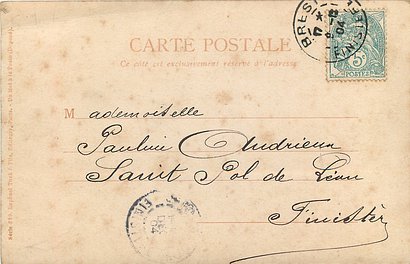 CARTE POSTALE
Ce côté est exclusivement réservé à l'adresse
BREST
FINISTERE
04
5c
POSTES
Mademoiselle
Pauline Andrieux
Saint Pol de Léon
Finistère